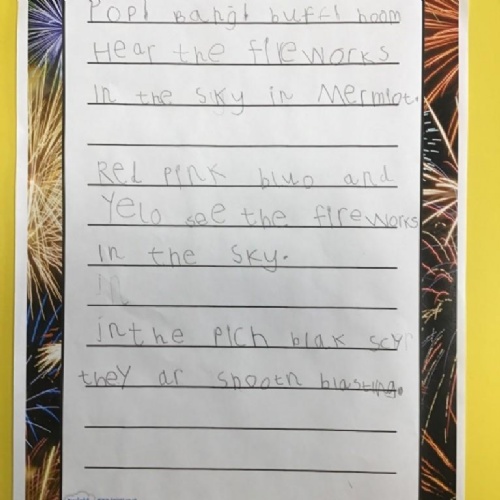 Pop! Bang! buff! boom
Hear the fireworks
In the sky in Mermiot.
Red pink bluo and
Yelo see the fireworks
in the sky.
In
in the pich blak scy
they ar shootn blasting.